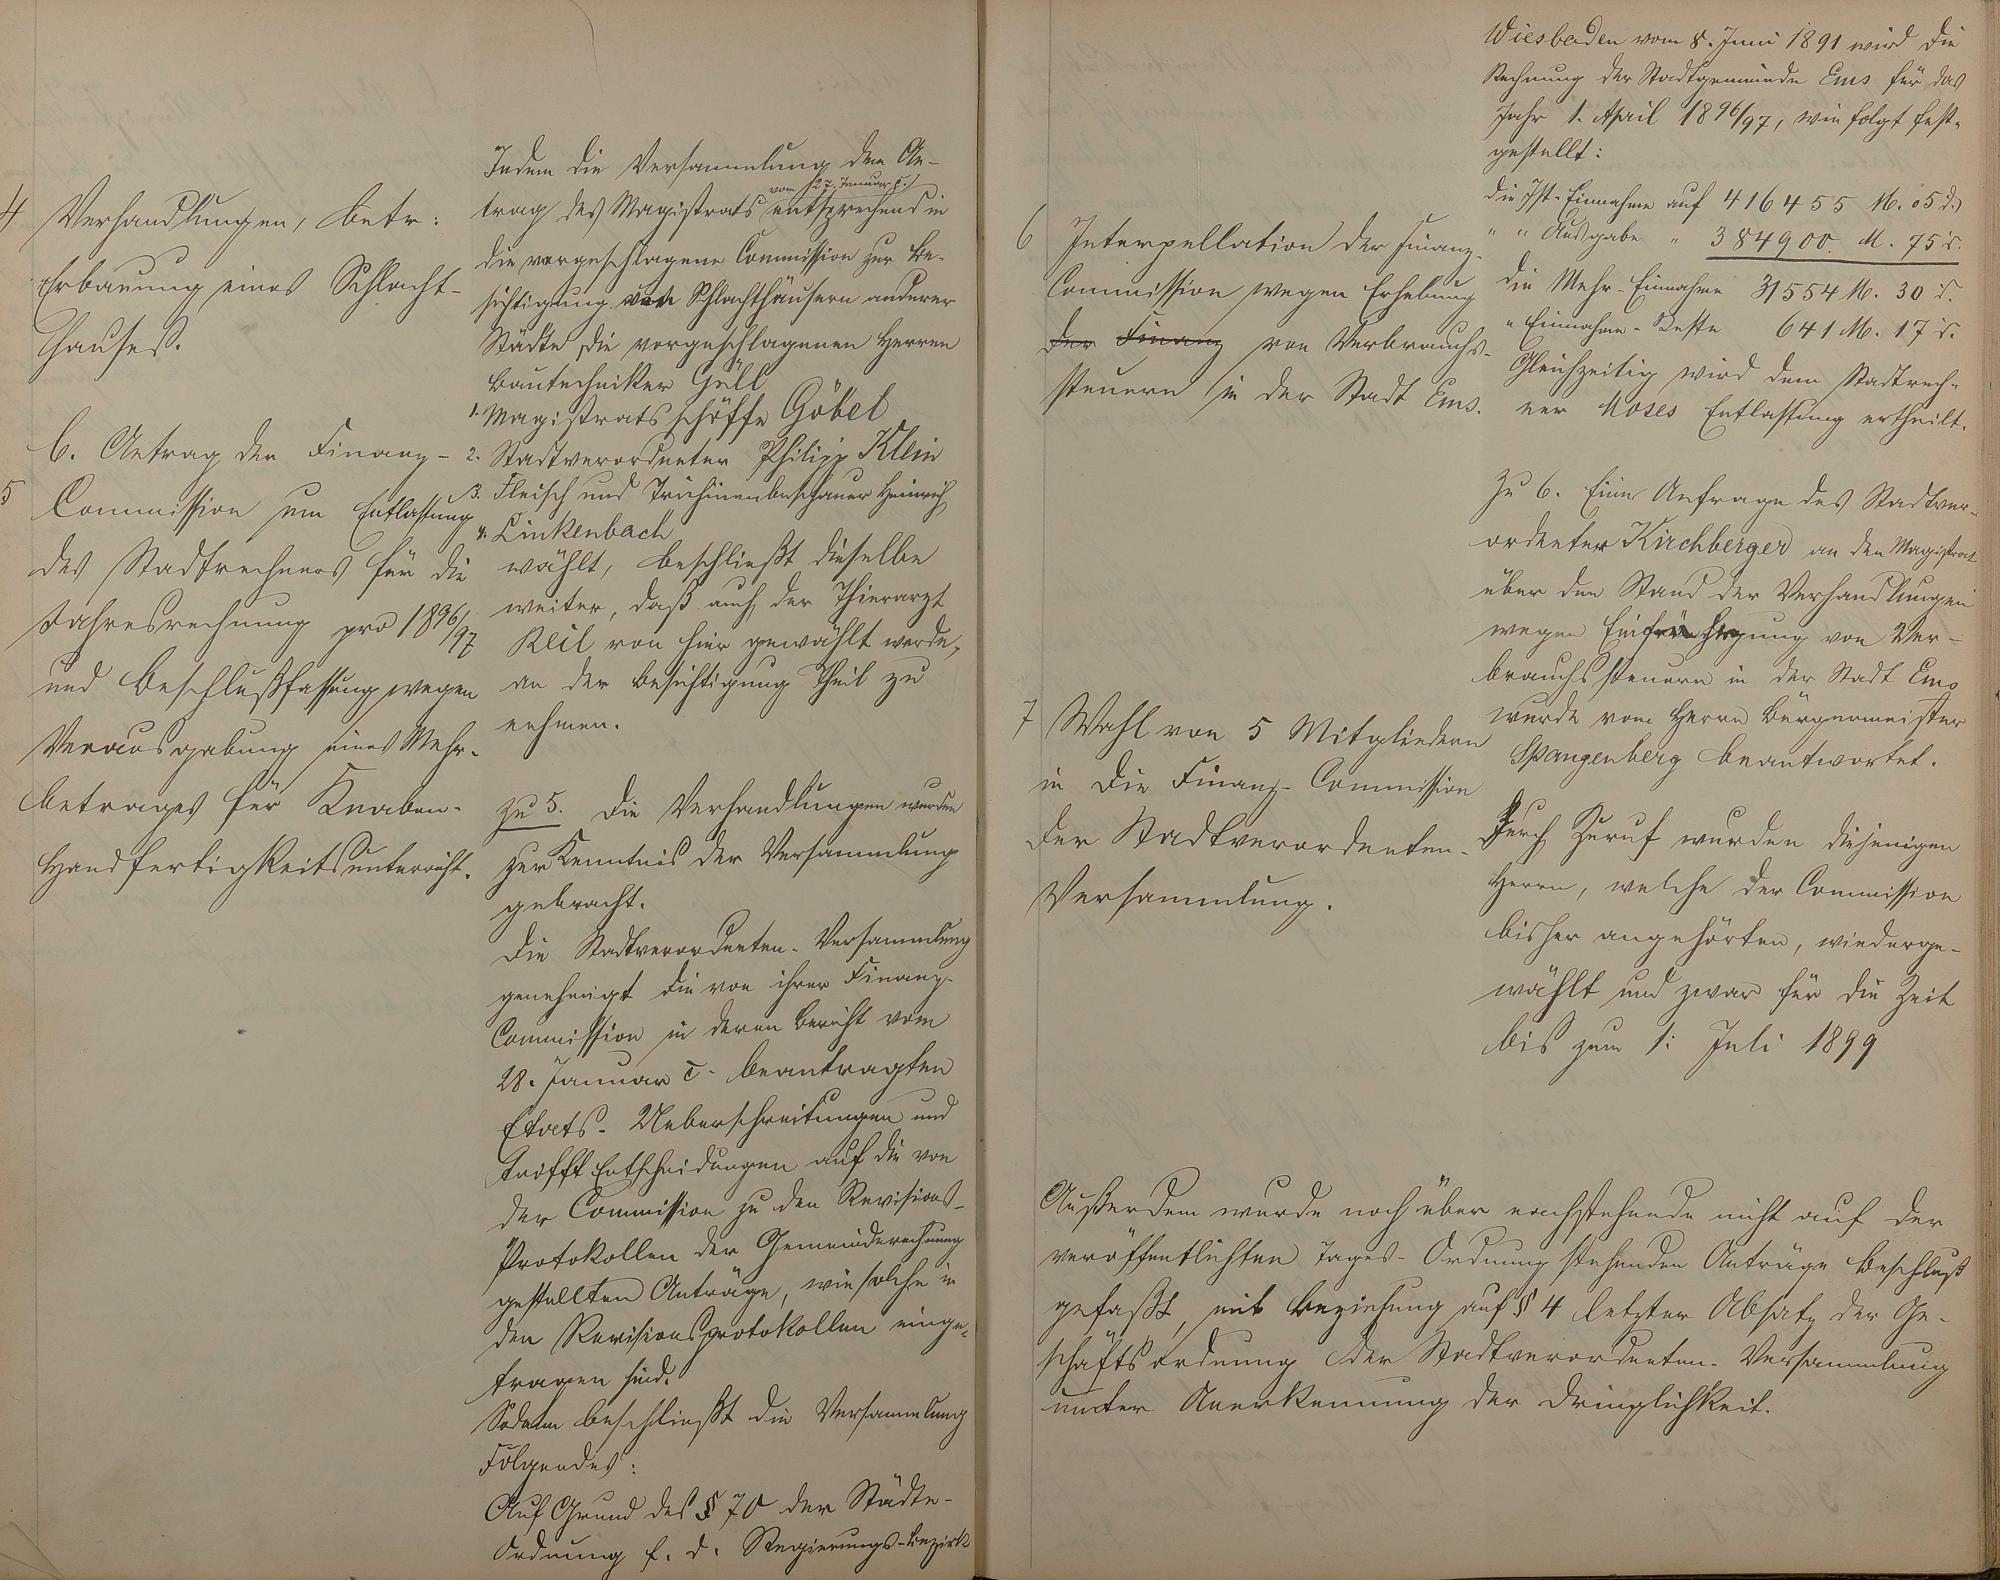 4 Verhandlungen, betr:
Erbauung eines Schlacht-
hauses.
b. Antrag der Finanz-
5 Commission um Entlastung
des Stadtrechners für die
Jahresrechnung pro 1896/97
und Beschlußfassung wegen
Verausgabung eines Mehr-
betrages für Knaben-
Handfertigkeitsunterricht.
Indem die Versammlung dem An-
vom 27. Januar c.
trag des Magistrats entsprechend in
die vorgeschlagene Commission zur Be-
sichtigung von Schlachthäusern anderer
Städte die vorgeschlagenen Herren
Bautechniker Gell
1. Magistratsschöffe Göbel
2. Stadtverordneter Philipp Klein
3. Fleisch und Trichinenbeschauer Heinrich
4. Linkenbach
wählt, beschließt dieselbe
weiter, daß auch der Thierarzt
Keil von hier gewählt werde,
an der Besichtigung Theil zu
nehmen.
zu 5. Die Verhandlungen wurden
zur Kenntnis der Versammlung
gebracht.
Die Stadtverordneten-Versammlung
genehmigt die von ihrer Finanz-
Commission in deren Bericht vom
28. Januar c. beantragten
Etats-Ueberschreitungen und
trifft Entscheidungen auf die von
der Commission zu den Revisions-
Protokollen der Gemeinderechnung
gestellten Anträge, wie solche in
den Revisionsprotokollen einge-
tragen sind.
Sodann beschließt die Versammlung
Folgendes:
Auf Grund des § 70 der Städte-
Ordnung f. d. Regierungs-Bezirk
Wiesbaden vom 8. Juni 1891 wird die
Rechnung der Stadtgemeinde Ems für das
Jahr 1. April 1896/97, wie folgt fest-
gestellt:
die Ist-Einnahme auf 416455 M. 05 d.
" " Ausgabe " 384900. M. 75 d.
die Mehr-Einnahme 31554 M. 30 d.
" Einnahme-Reste 641 M. 17 d.
Gleichzeitig wird dem Stadtrech-
ner Moses Entlastung ertheilt.
6 Interpellation der Finanz-
Commission wegen Erhebung
der Finanz von Verbrauchs-
steuern in der Stadt Ems.
zu 6. Eine Anfrage des Stadtver-
ordneten Kirchberger an den Magistrat
über den Stand der Verhandlungen
wegen Einführung von Ver-
brauchssteuern in der Stadt Ems
wurde vom Herrn Bürgermeister
Spangenberg beantwortet.
7 Wahl von 5 Mitgliedern
in die Finanz-Commission
der Stadtverordneten-
Versammlung.
Durch Zuruf wurden diejenigen
Herrn, welche der Commission
bisher angehörten, wiederge-
wählt und zwar für die Zeit
bis zum 1. Juli 1899
Außerdem wurde noch über nachstehende nicht auf der
veröffentlichten Tages-Ordnung stehenden Anträge Beschluß
gefaßt, mit Beziehung auf § 4 letzter Absatz der Ge-
schäftsordnung der Stadtverordneten-Versammlung
unter Anerkennung der Dringlichkeit.